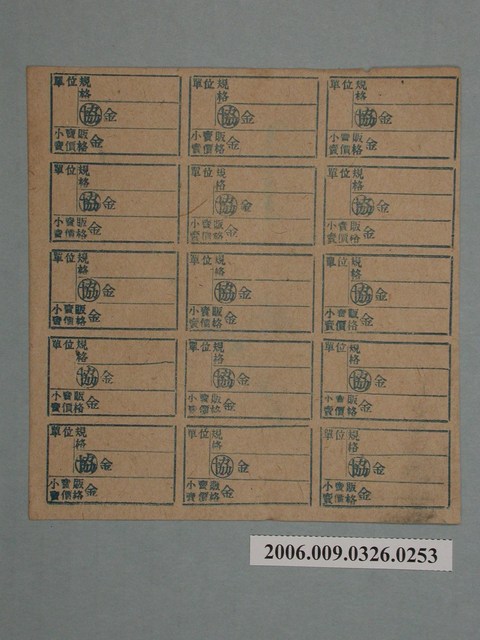 單位規格
協 金
小賣販賣價格 金
單位規格
協 金
小賣販賣價格 金
單位規格
協 金
小賣販賣價格 金
單位規格
協 金
小賣販賣價格 金
單位規格
協 金
小賣販賣價格 金
單位規格
協 金
小賣販賣價格 金
單位規格
協 金
小賣販賣價格 金
單位規格
協 金
小賣販賣價格 金
單位規格
協 金
小賣販賣價格 金
單位規格
協 金
小賣販賣價格 金
單位規格
協 金
小賣販賣價格 金
單位規格
協 金
小賣販賣價格 金
單位規格
協 金
小賣販賣價格 金
單位規格
協 金
小賣販賣價格 金
單位規格
協 金
小賣販賣價格 金
2006.009.0326.0253